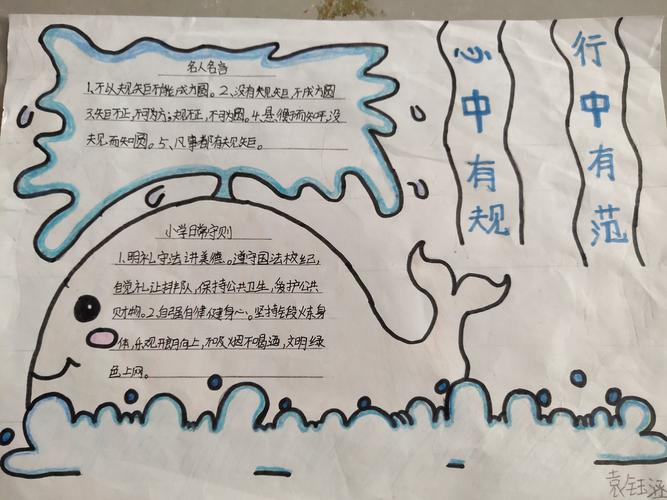 名人名言
1、不以规矩不能成方圆。2、没有规矩,不成方圆
3、矩不正,不可为方;规不正,不可为圆。4、悬衡而知平,设
规而知圆。5、凡事都有规矩。
心中有规
行中有范
小学日常守则
1、明礼守法讲美德。遵守国法校纪,
自觉礼让排队,保持公共卫生,爱护公共
财物。2、自强自健健身心。坚持锻炼身
体,乐观开朗向上,不吸烟不喝酒,文明绿
色上网。
袁钰涵